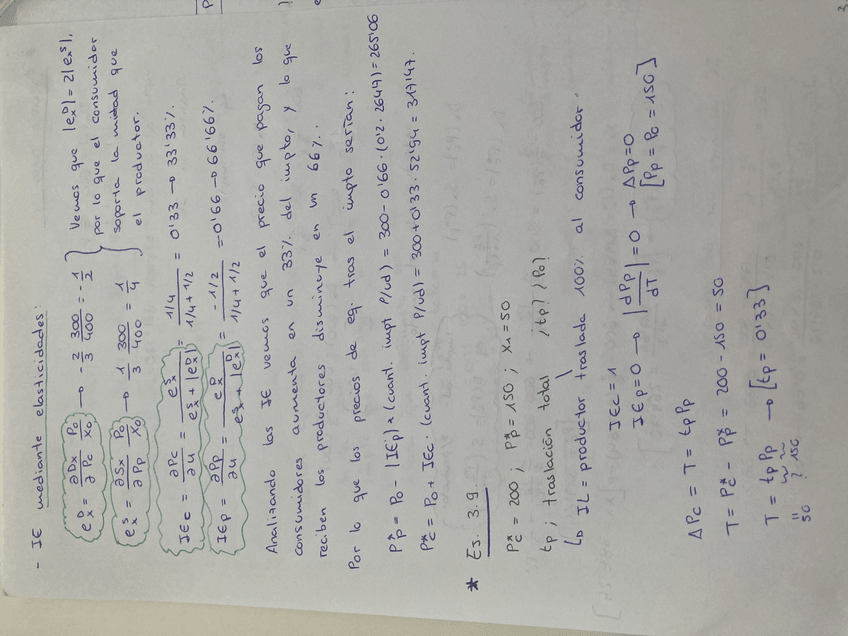 - IE mediante elasticidades:
e_x^D = ∂Dx/∂Pc · Po/Xo → -2/3 · 300/400 = -1/2
e_x^S = ∂Sx/∂Pp · Po/Xo → 1/3 · 300/400 = 1/4
Vemos que |e_x^D| = 2|e_x^S|,
por lo que el consumidor
soporta la mitad que
el productor.
IEc = ∂Pc/∂u = e_x^S/(e_x^S + |e_x^D|) = (1/4)/(1/4 + 1/2) = 0'33 → 33'33%.
IEp = ∂Pp/∂u = e_x^D/(e_x^S + |e_x^D|) = (-1/2)/(1/4 + 1/2) = 0'66 → 66'66%.
Analizando las IE vemos que el precio que pagan los
consumidores aumenta en un 33% del impto, y lo que
reciben los productores disminuye en un 66%.
Por lo que los precios de eq. tras el impto serían:
P*p = Po - |IEp| × (cuant. impt P/ud) = 300 - 0'66 · (0'2 · 264'7) = 265'06
P*c = Po + IEc · (cuant. impt P/ud) = 300 + 0'33 · 52'94 = 317'47.
* Ej. 3.9
P*c = 200 ; P*p = 150 ; X1 = 50
tp ; traslación total ¿tp? ¿Po?
↳ IL = productor traslada 100% al consumidor.
IEc = 1
IEp = 0 → |dPp/dT| = 0 → ΔPp = 0
[Pp = Po = 150]
ΔPc = T = tp Pp
T = P*c - P*p = 200 - 150 = 50
T = tp Pp → [tp = 0'33]
50 ? 150